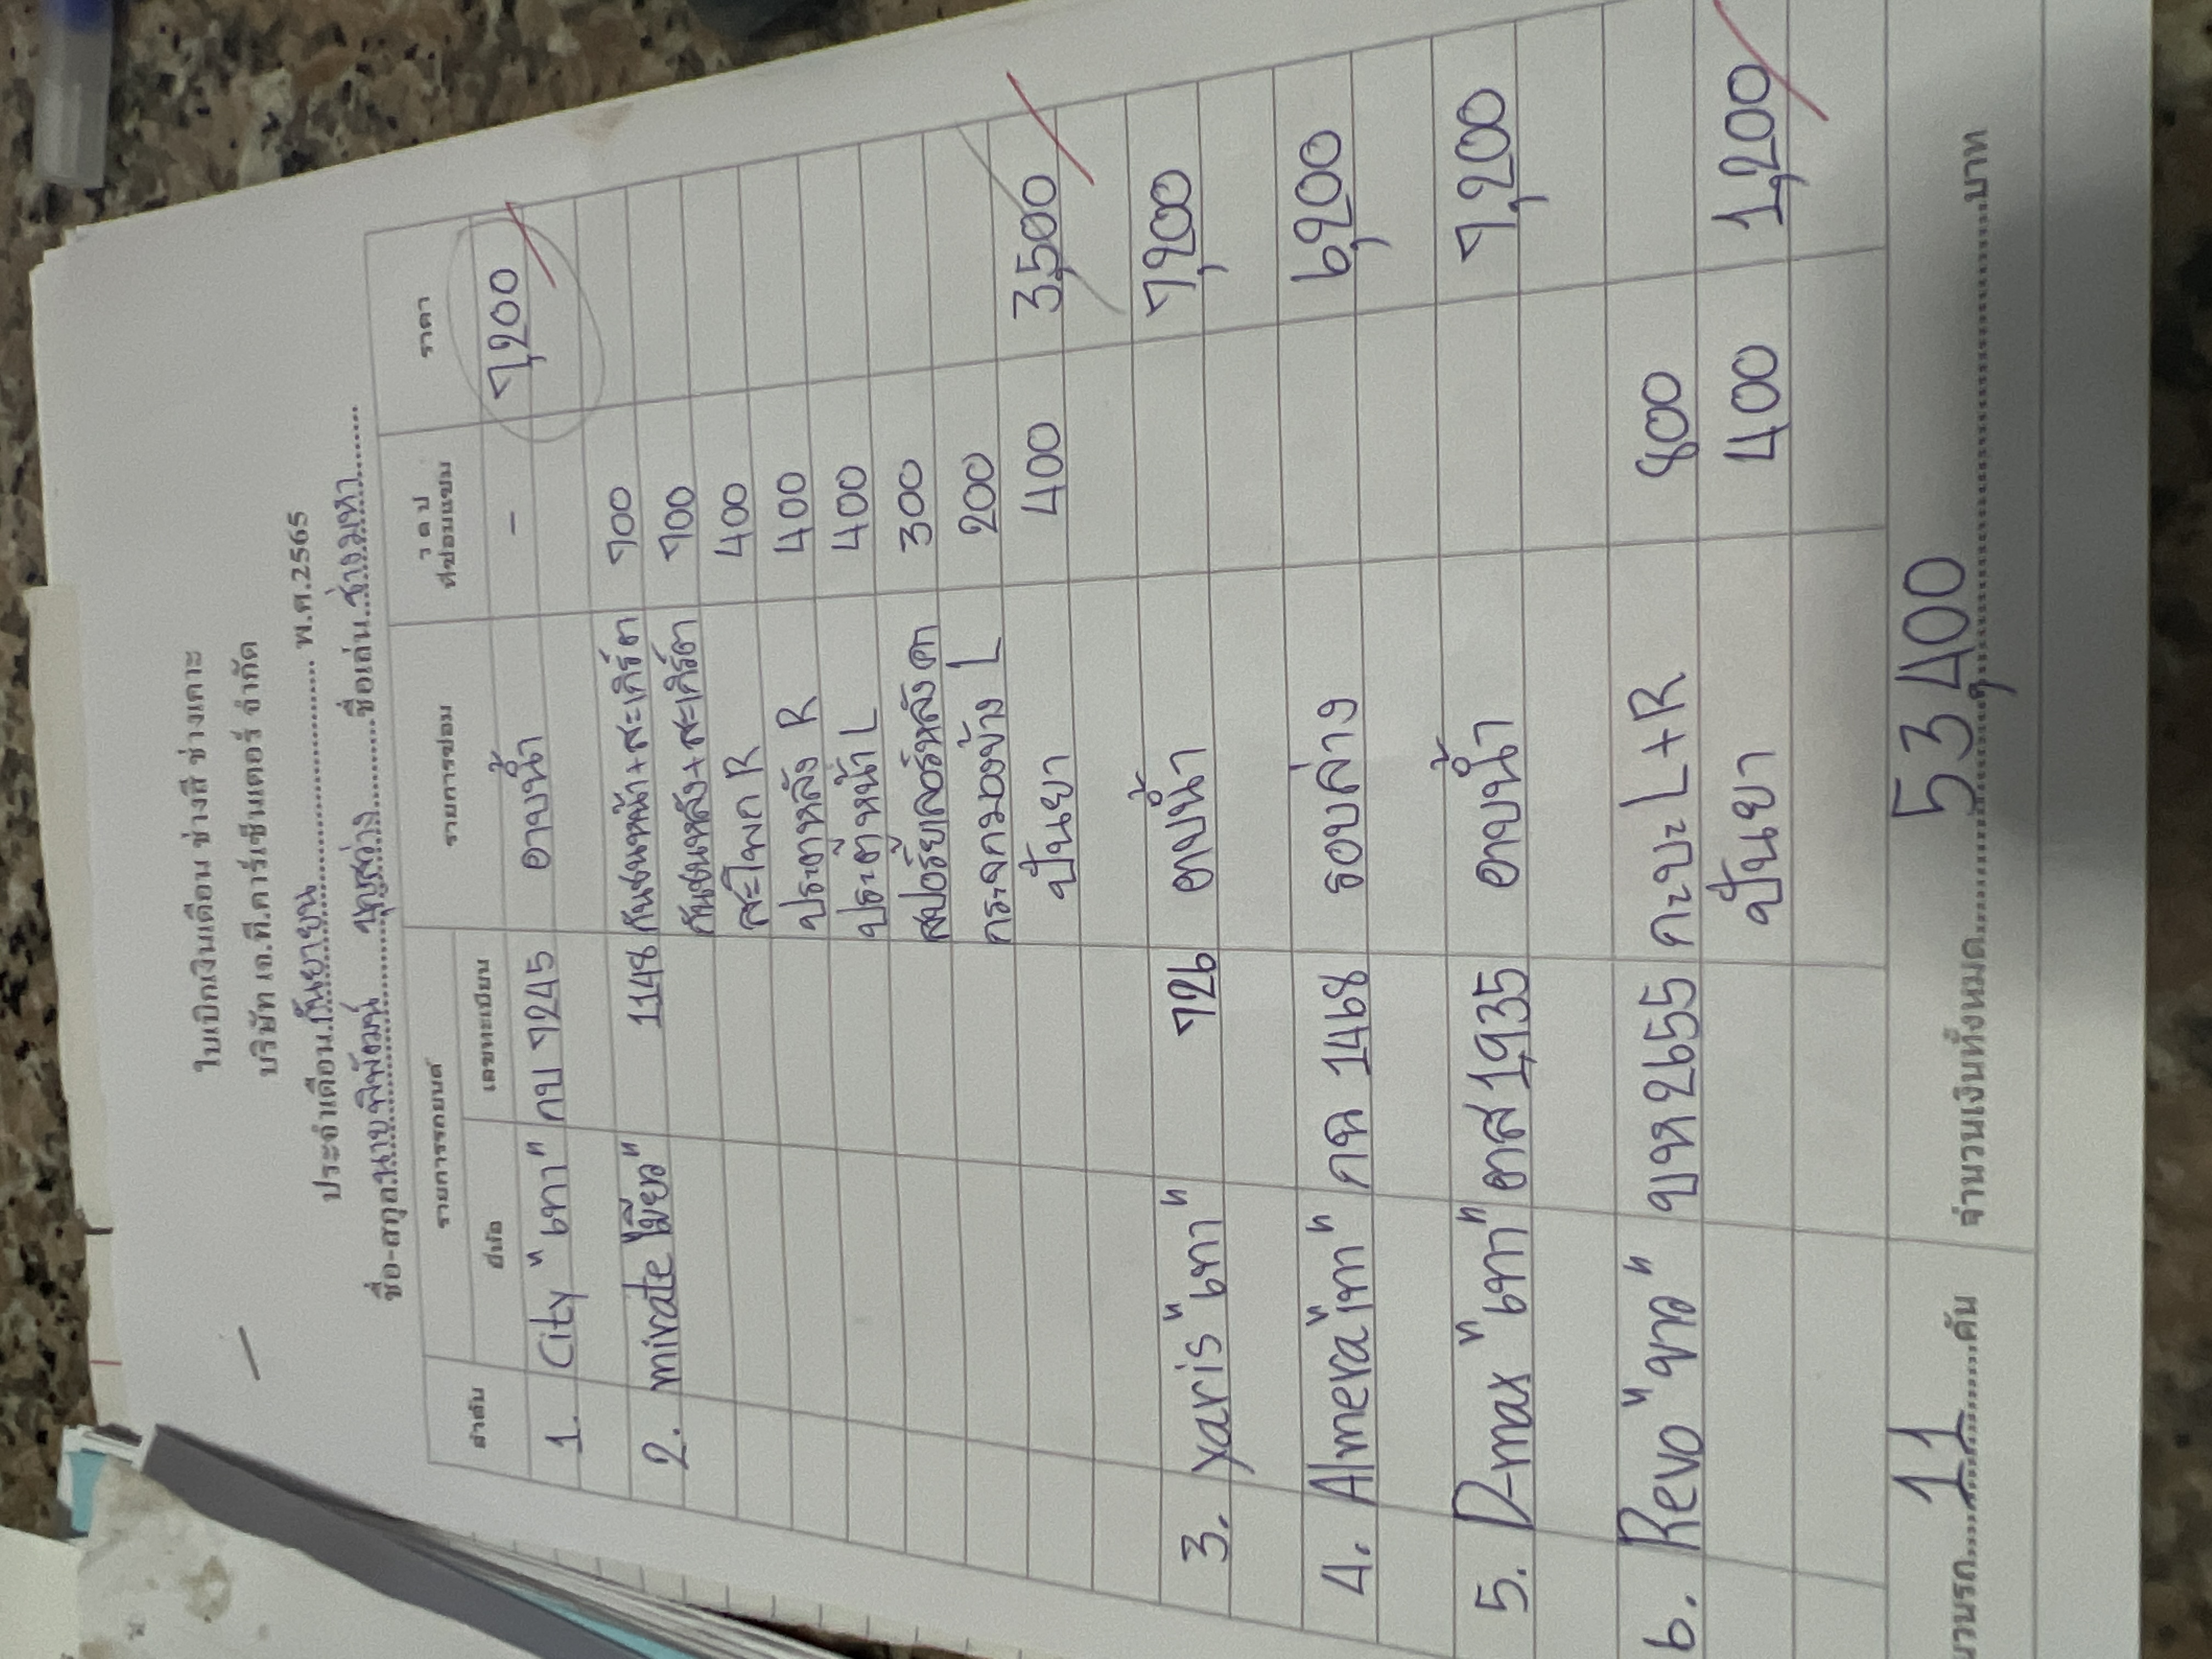 ใบเบิกเงินเดือน ช่างสี ช่างเคาะ
บริษัท เอ.ที.คาร์เซ็นเตอร์ จำกัด
ประจำเดือน.กันยายน.......... พ.ศ.2565
ชื่อ-สกุล.นายพิพัฒน์ บุญสว่าง.....ชื่อเล่น.ช่างมหา......
ลำดับ รายการรถยนต์ รายการซ่อม ว ด ป ที่ซ่อมแซม ราคา
ยี่ห้อ เลขทะเบียน
1. City "เทา" กบ 7245 อาบน้ำ - 7,200
2. mirate "เขียว" 1148 กันชนหน้า+สะเกิร์ต 700
กันชนหลัง+สะเกิร์ต 700
สะโพก R 400
ประตูหลัง R 400
ประตูหน้า L 400
สปอร์ยเลอร์หลังคา 300
กระจกมองข้าง L 200
ปั่นยา 400 3,500
3. Yaris "เทา" 726 อาบน้ำ 7,200
4. Almera "เทา" กฉ 1468 รอบล่าง 6,200
5. D-max "เทา" ตส 1935 อาบน้ำ 7,200
6. Revo "ขาว" บห 2655 กะบะ L+R 800
ปั่นยา 400 1,200
นวนรถ.....11.....คัน จำนวนเงินทั้งหมด.....53,400.....บาท